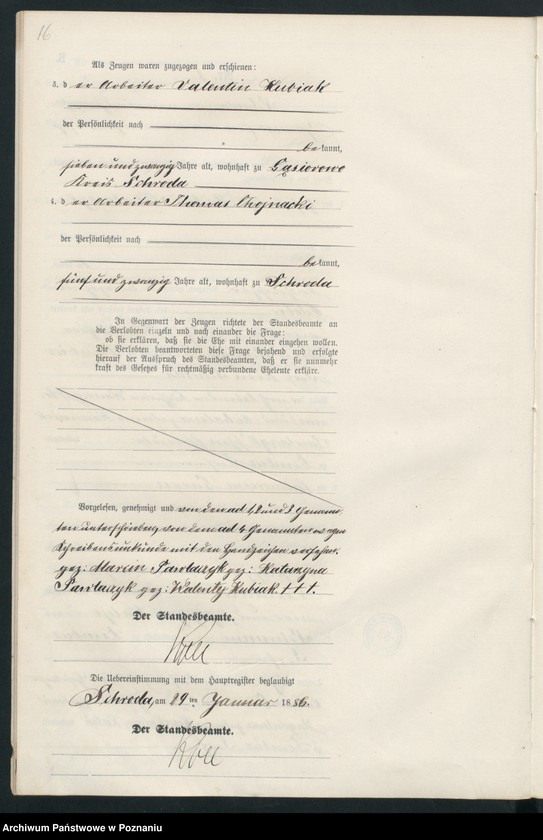 16
Als Zeugen waren zugezogen und erschienen:
3. d er Arbeiter Valentin Kubiak
der Persönlichkeit nach
be kannt,
sieben und zwanzig Jahre alt, wohnhaft zu Gąsiorowo
Kreis Schroda
4. d er Arbeiter Thomas Chojnacki
der Persönlichkeit nach
be kannt,
fünf und zwanzig Jahre alt, wohnhaft zu Schroda
In Gegenwart der Zeugen richtete der Standesbeamte an
die Verlobten einzeln und nach einander die Frage:
ob sie erklären, daß sie die Ehe mit einander eingehen wollen.
Die Verlobten beantworteten diese Frage bejahend und erfolgte
hierauf der Ausspruch des Standesbeamten, daß er sie nunmehr
kraft des Gesetzes für rechtmäßig verbundene Eheleute erkläre.
Vorgelesen, genehmigt und von dem ad 1, 2 und 3 Genann-
ten unterschrieben, von dem ad 4 Genannten wegen
Schreibensunkunde mit den Handzeichen versehen.
gez: Marcin Pawlaczyk gez: Katarzyna
Pawlaczyk gez: Walenty Kubiak. † † †.
Der Standesbeamte.
Die Uebereinstimmung mit dem Hauptregister beglaubigt
Schroda, am 24 ten Januar 18 86.
Der Standesbeamte.
Archiwum Państwowe w Poznaniu